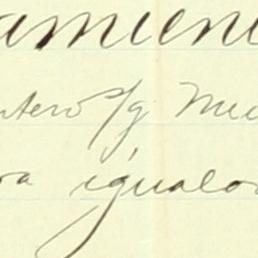 amien
ntero s/g Me
ra igualo